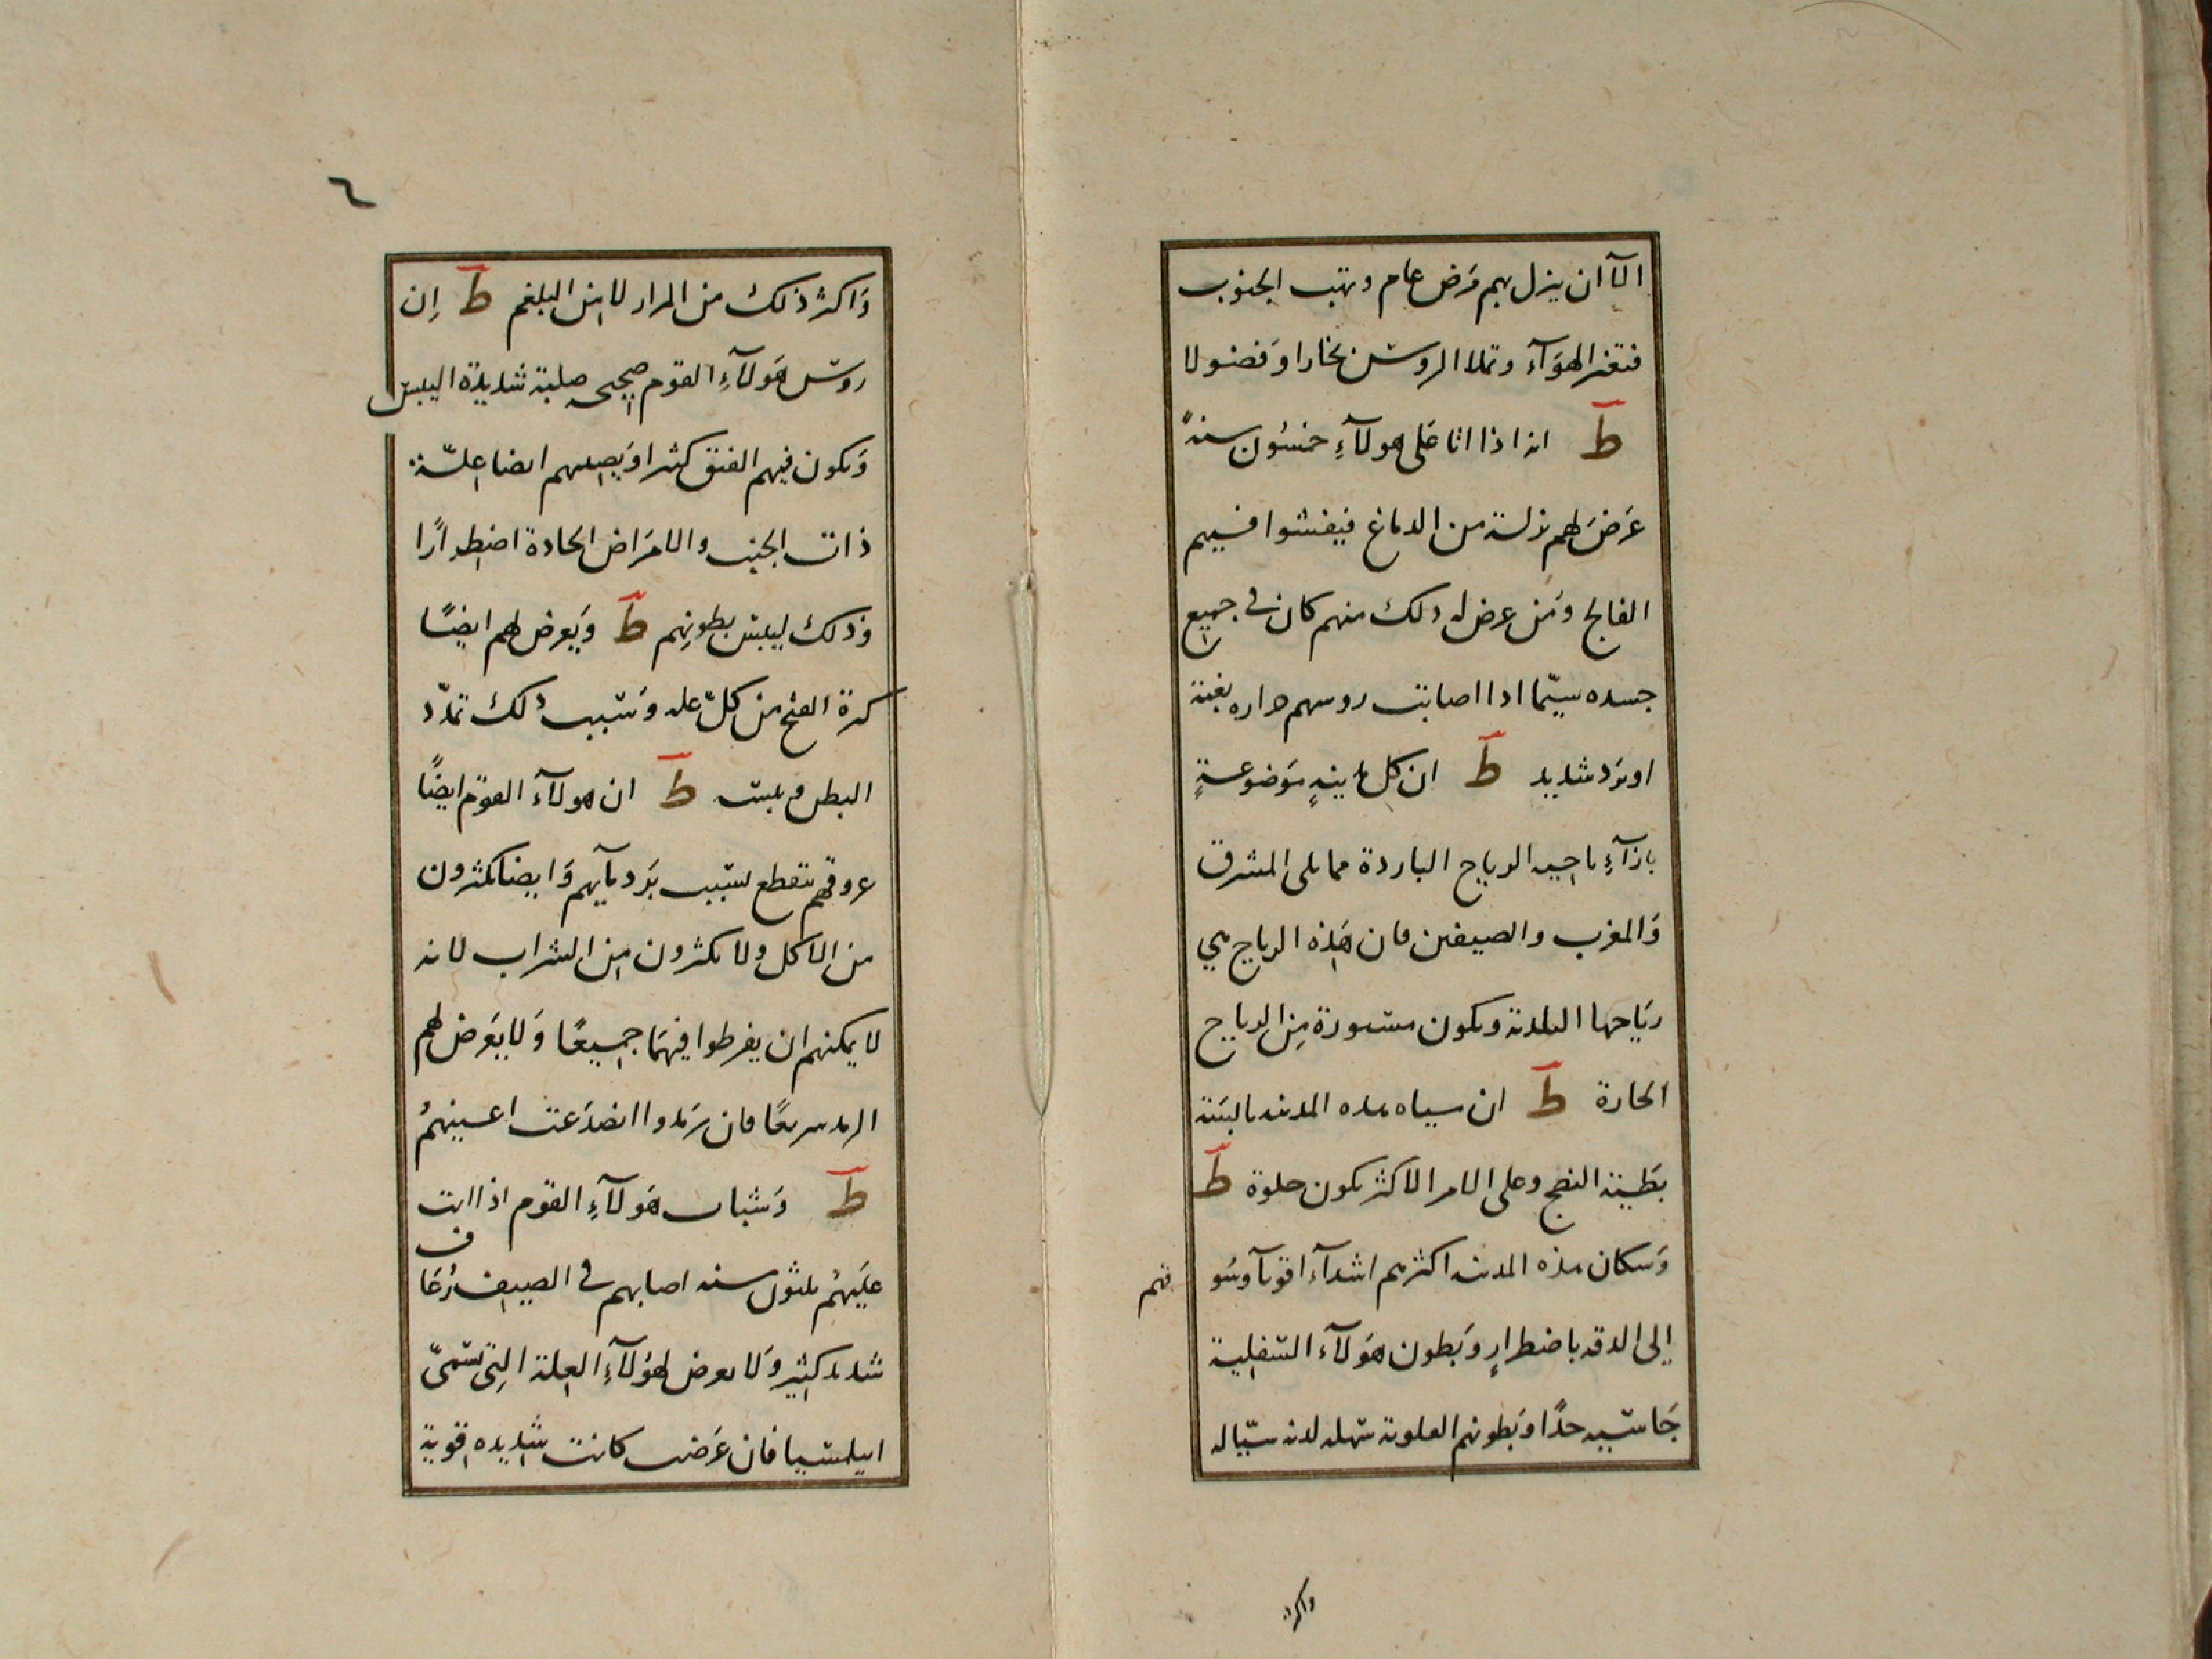 الآ ان ينزل بهم مَرض عام وتهب الجنوب
فتغير الهوَآء وتملا الروس بخارا وَفضولا
ط انه اذا اتا عَلى هولآءِ خمسُون سنةً
عَرَضَ لهم نزلة من الدماغ فيفشوا فيهم
الفالج وَمَن عرض له دلك منهم كان في جميع
جسده سيّما ادا اصابت روسهم حراره بغتة
او بَرد شديد ط ان كل مدينةٍ مَوضوعةٍ
بازآءِ ناحيه الرياح الباردة مما يلى المشرق
وَالمغرب والصيفين فان هَذه الرياح هي
ريَاحها البلدية وتكون مستورة مِن الرياح
الحارة ط ان مياه هده المدينه يابسَة
بَطيئة النضج وعلى الامر الاكثر يكون حلوة ط
وَسكان هذه المدينه اكثرهم اشدآء اقويآ وسُو
قهم
إلى الدقه باضطرارٍ وَبطون هَولآء السَفلية
جَاسيه جدًا وَبطونهم العلوية سهله لدنه سيّاله
واكثر
٦
وَاكثر ذلك من المرار لا من البلغم ط اِن
روس هَولآءِ القوم صحيحه صلبة شديدة اليبس
وَيكون فيهم الفتق كثيرا وَيصيبهم ايضا علّة
ذات الجنب والامرَاض الحادة اضطرارًا
وَذلك ليبس بطونِهم ط وَيَعرض لهم ايضًا
كثرة القيح من كلّ عله وَسَبب دلك تمدّد
البطن ويبسه ط ان هولآءَ القوم ايضًا
عروقهم تنقطع بسَبب بَرد مآيهم وَايضا يكثرون
من الاكل ولا يكثرون من الشراب لانه
لا يمكنهم ان يفرطوا فيهمَا جميعًا وَلا يَعرَض لهم
الرمد سريعًا فان رَمدوا انصدَعت اعينهمُ
ط وَشباب هَولآءِ القوم اذا اتت
عليَهمُ ثلثون سنه اصابهم في الصيف رُعَا
ف
شديد كثير وَلا يعرض لهَولآءِ العلة التِى تسَمىّ
ابيلمسيا فان عَرَضت كانت شديده قوية